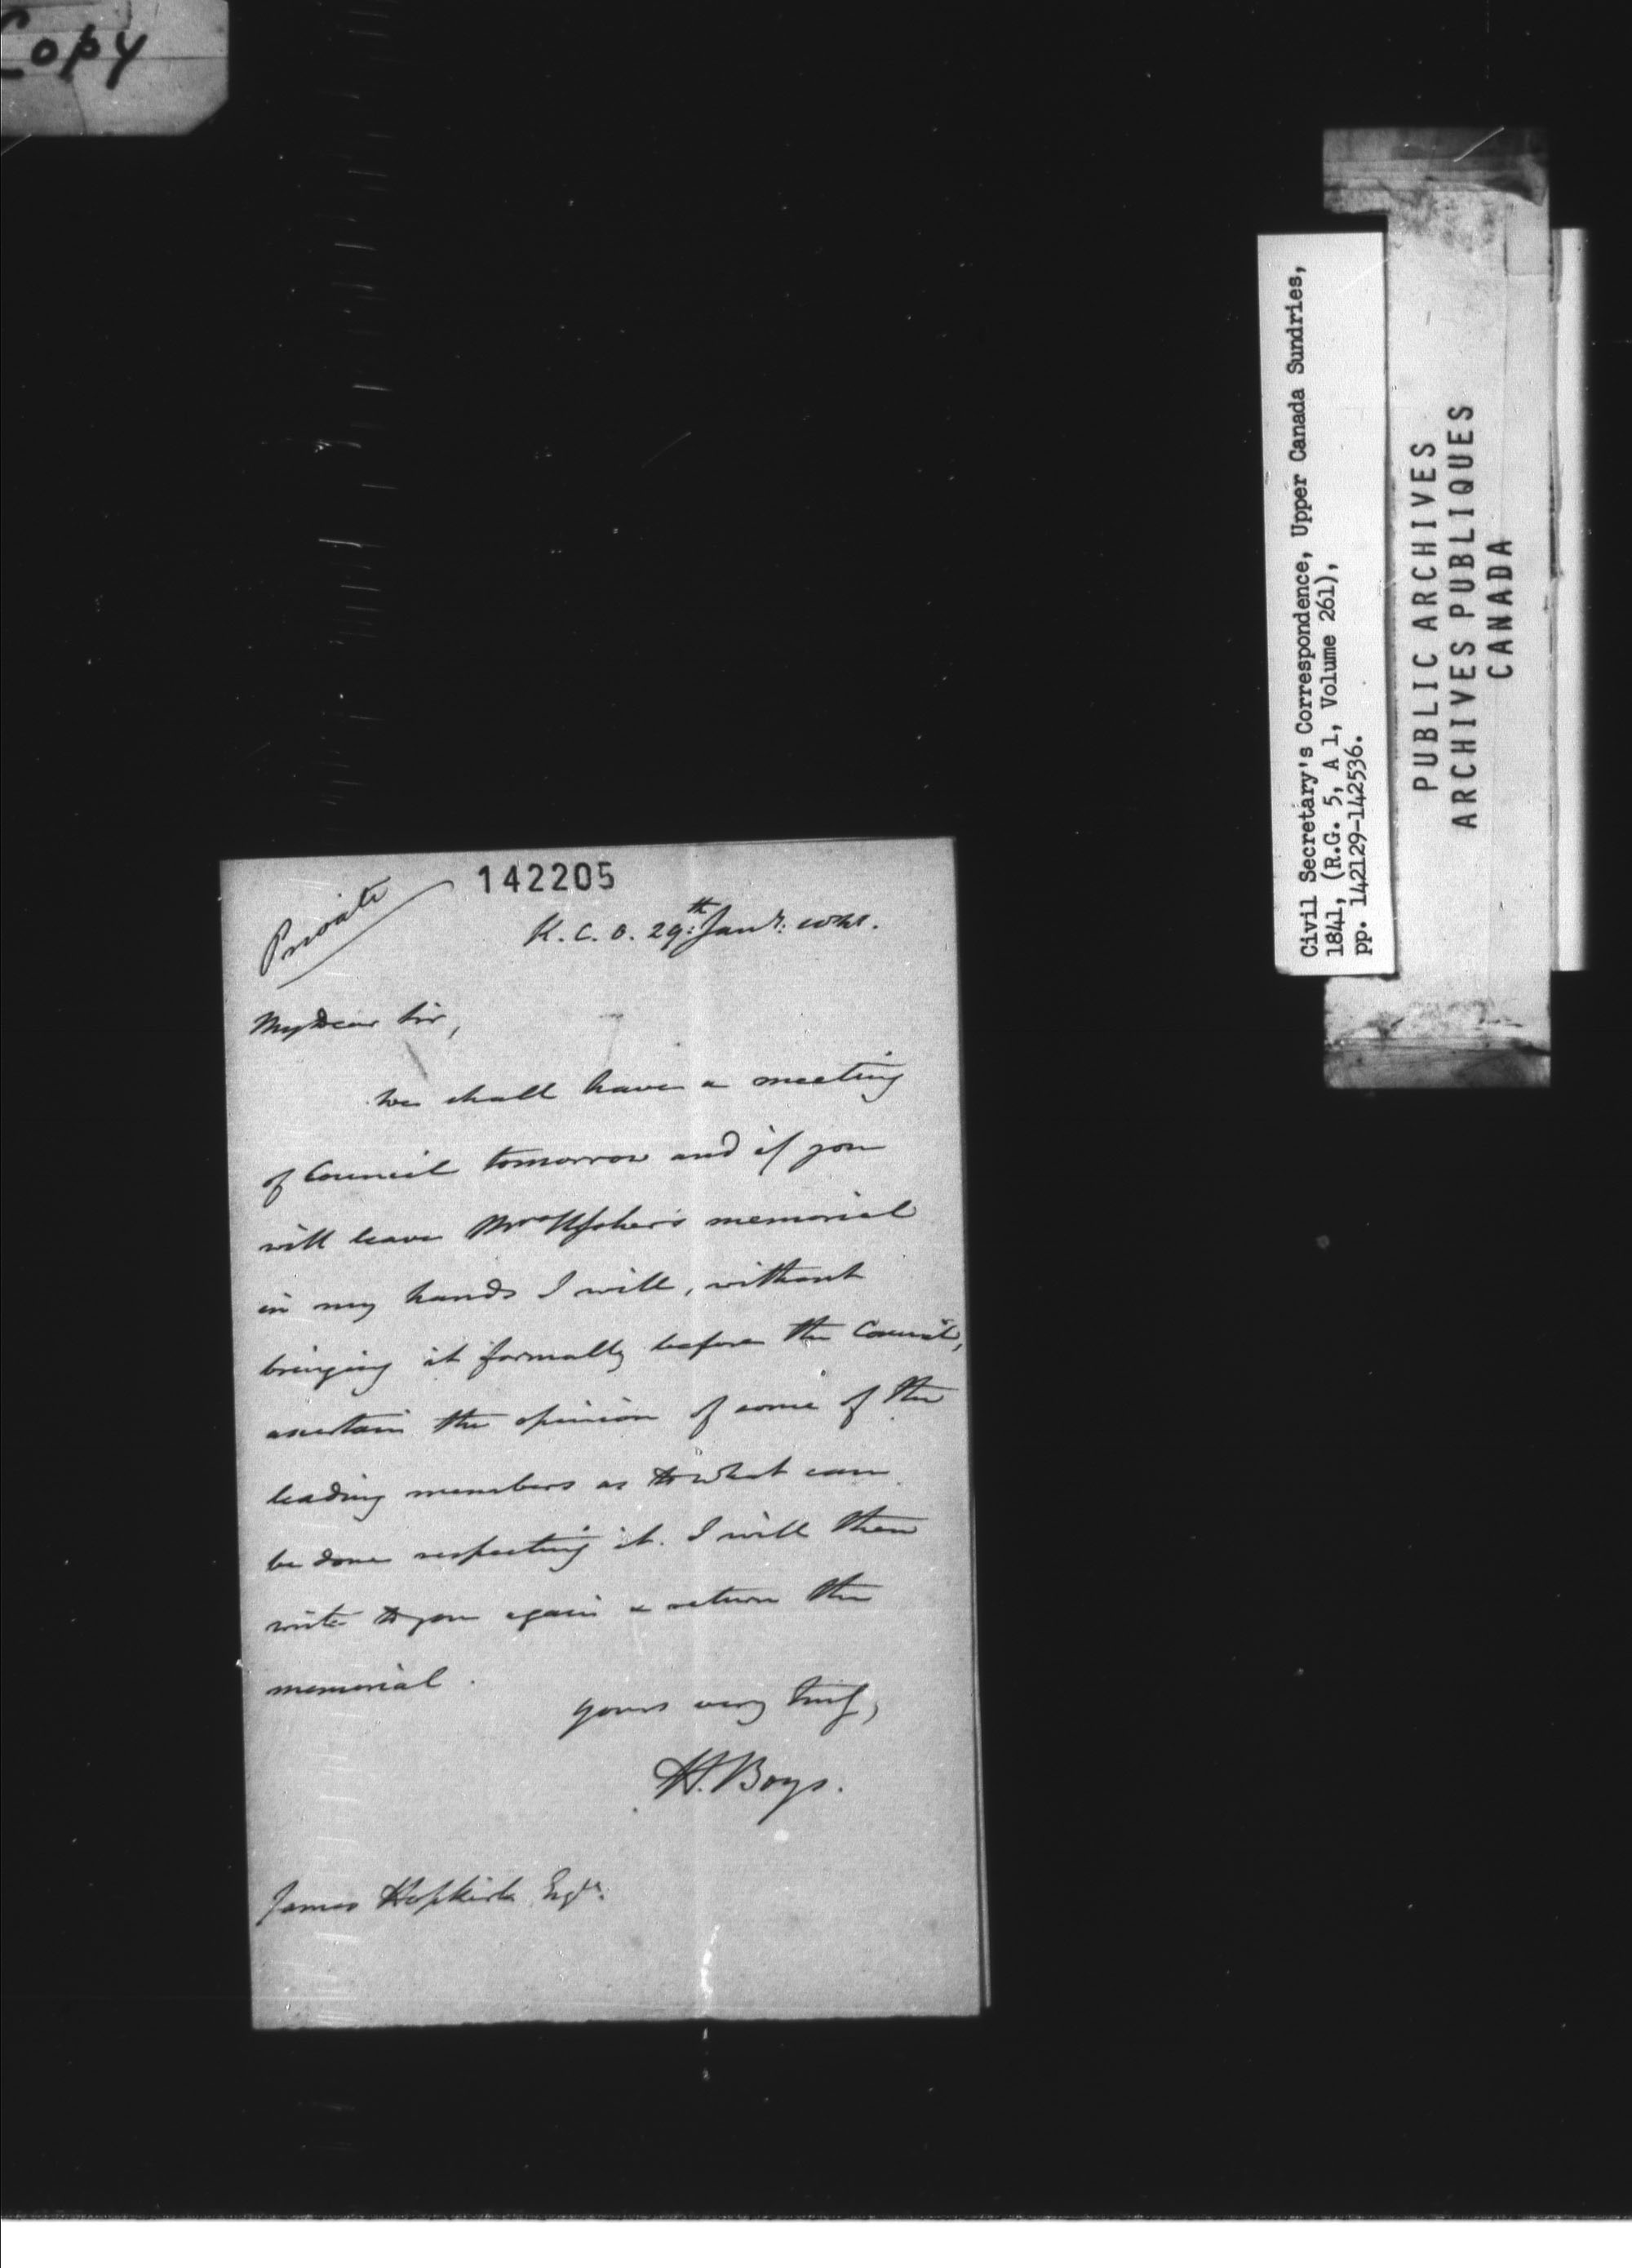 Copy
Civil Secretary's Correspondence, Upper Canada Sundries,
1841, (R.G. 5, A 1, Volume 261),
pp. 142129-142536.
PUBLIC ARCHIVES
ARCHIVES PUBLIQUES
CANADA
142205
Private
K. C. O. 29th Jany.
My Dear Sir,
We shall have a meeting
of Council tomorrow and if you
will leave memorial
in my hands I will, without
bringing it formally before the Council,
ascertain the opinion of some of the
leading members as to what can
be done respecting it. I will then
write to you again & return the
memorial.
Yours very truly,
H. Boys.
James Hopkirk Esqre.